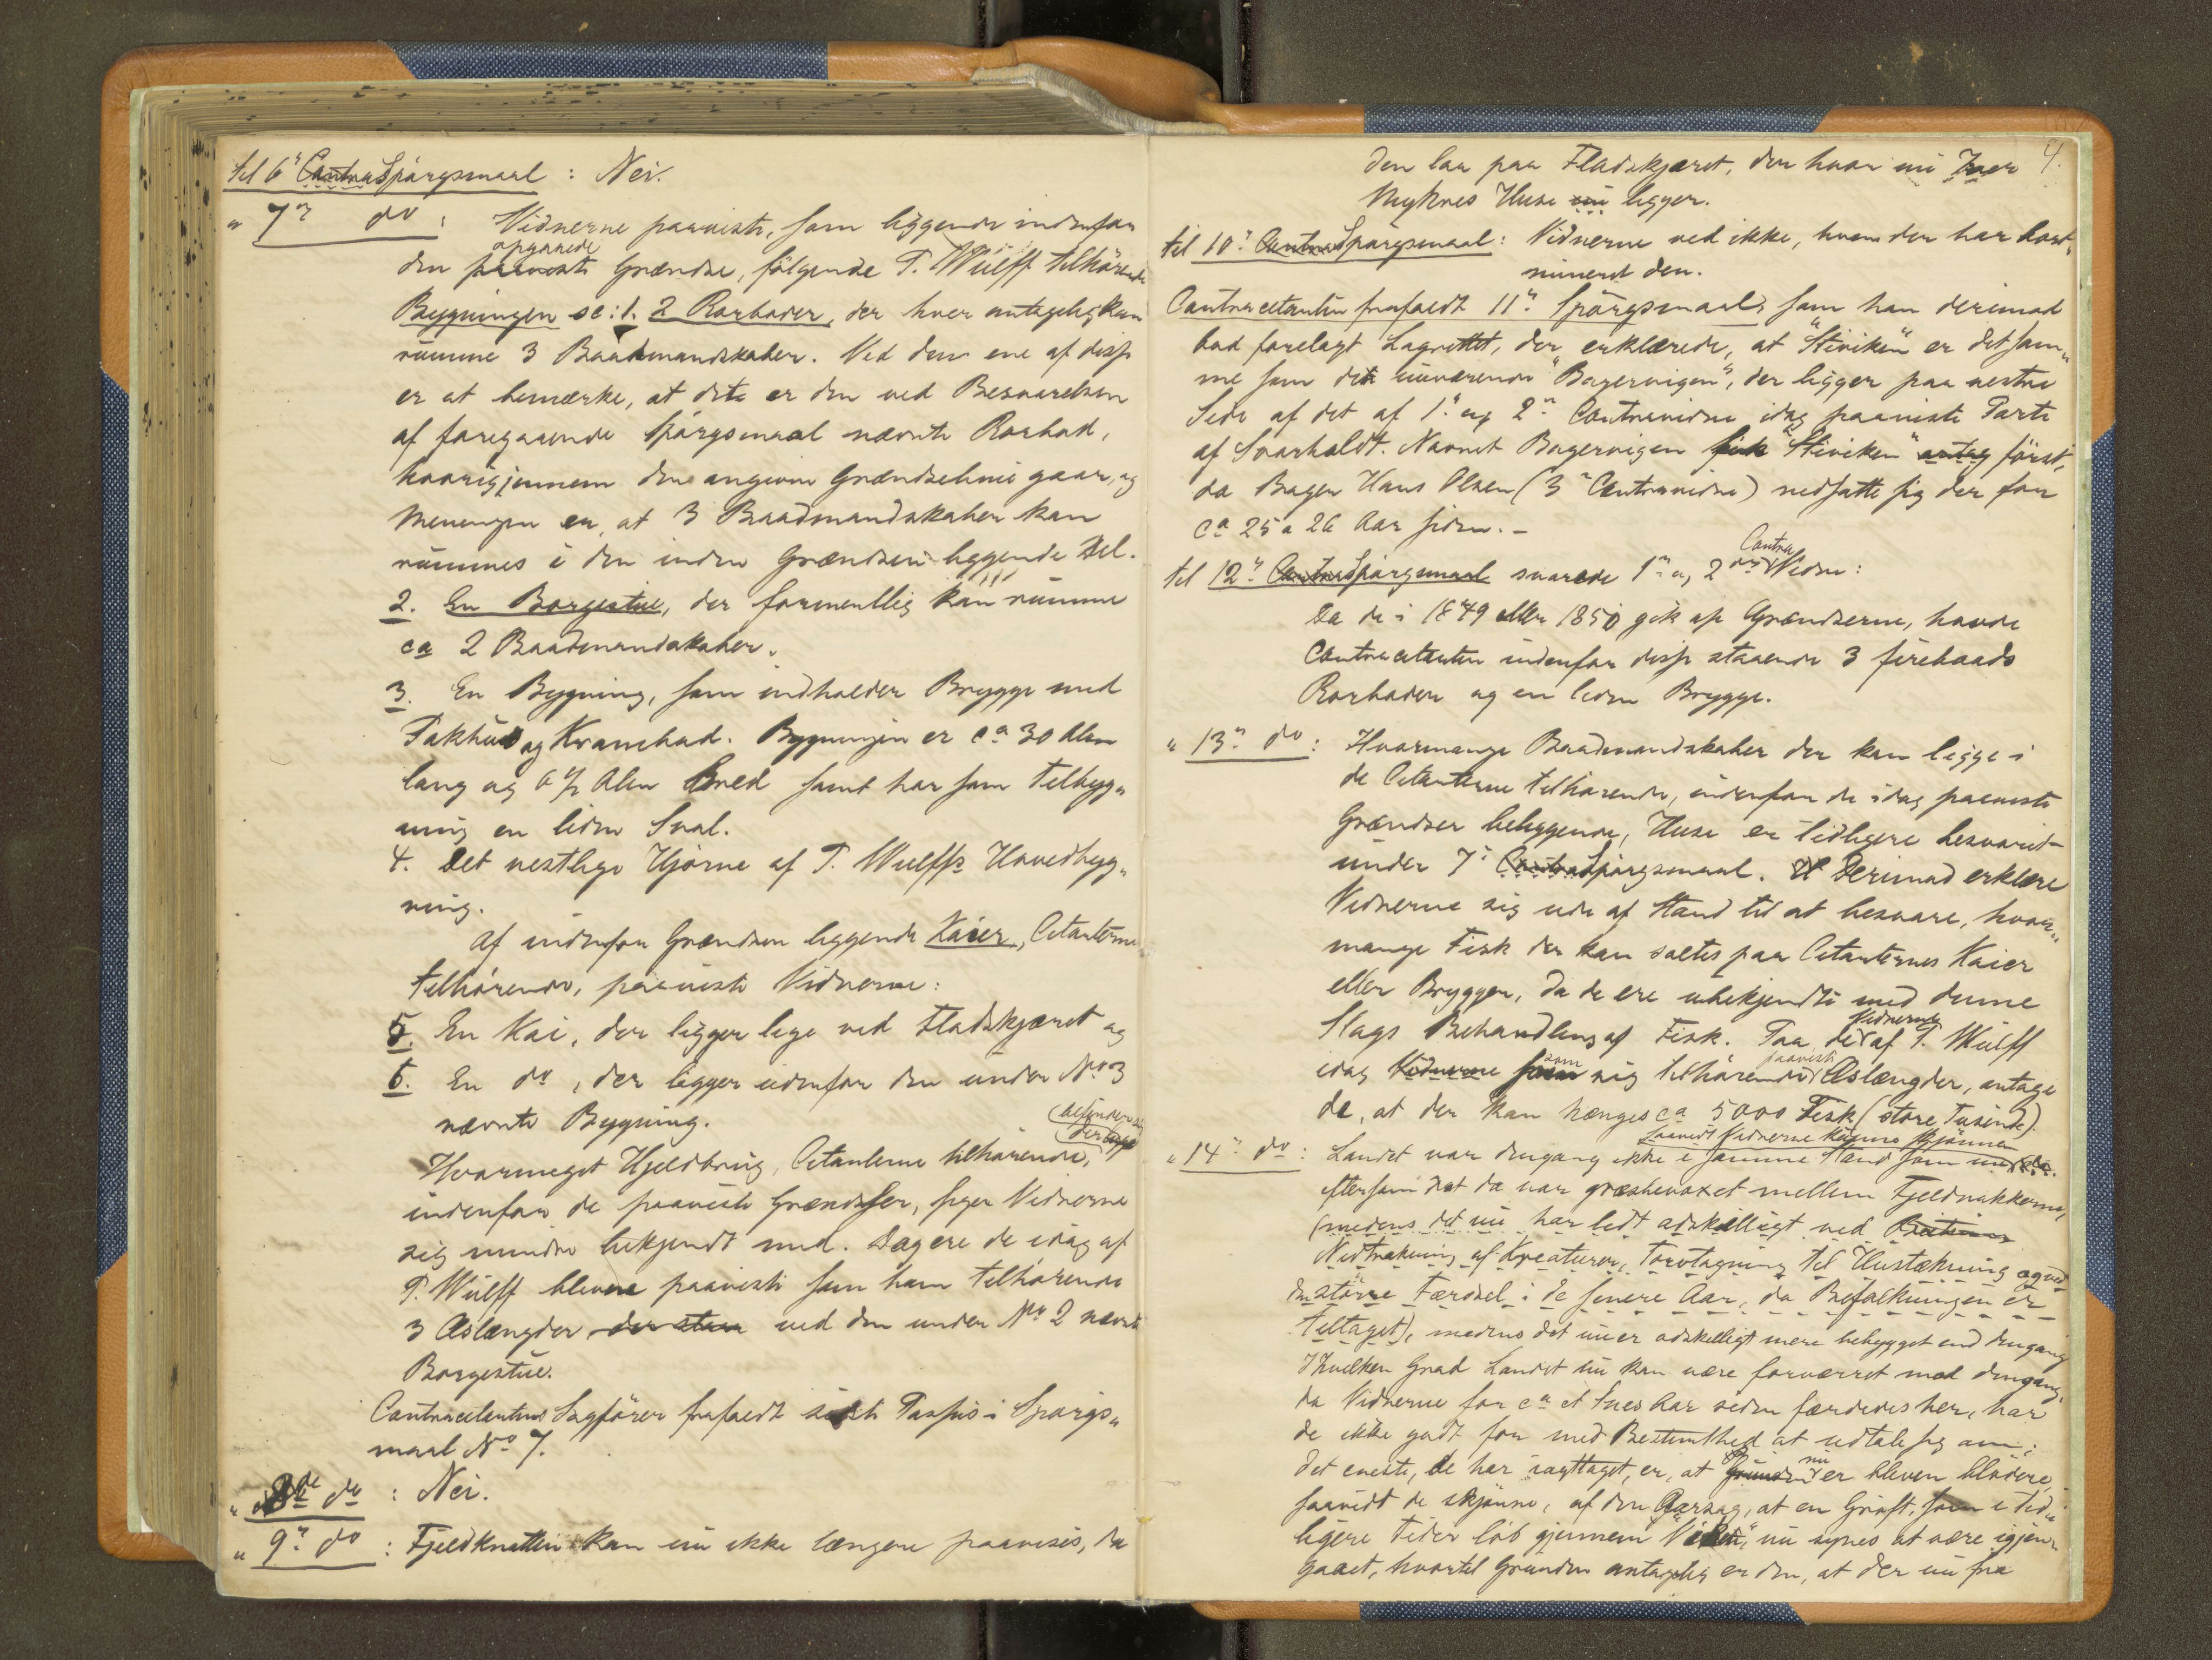 til 6'' Contraspörgsmaal : Nei.
" 7'' do : Vidnerne paaviste, som liggende indenfor
opgaaede
den paaviste Grændse, følgende T. Wülff tilhörende
Bygningen sc: 1. 2 Rorboder, der hver antagelig kan
rümme 3 Baadmandskaber. Ved den ene af disse
er at bemærke, at dette er den ved Besvarelsen
af foregaaende Spörgsmaal nævnte Rorbod,
hvorigjennem den angivne Grændselinie gaar, og
Meningen er, at 3 Baadmandskaber kan
rümmes i den inden Grændsen liggende Del.
2. En Borgestüe, der formentlig kan rümme
ca 2 Baadmandskaber.
3. En Bygning, som indholder Brygge med
Pakhüs og Krambod. Bygningen er ca 30 Alen
lang og 6 1/2 Alen bred samt har som Tilbyg„
ning en liden Sval.
4. Det vestlige Hjörne af T. Wülffs Hovedbyg„
ning.
Af indenfor Grændsen liggende Kaier, Citanterne
tilhörende, paaviste Vidnerne:
5. En Kai, der ligger lige ved Fladskjæret og
6. En do, der ligger udenfor den under No 3
nævnte Bygning.
befinder sig
der ligge
Hvormeget Hjeldbrüg, Citanterne tilhörende,
indenfor de paaviste Grændser, siger Vidnerne
sig mindre bekjendt med. Dog ere de idag af
T. Wülff blevne paaviste som ham tilhörende
3 Æslængder der staar ved den under No 2 nævnte
Borgestüe.
Contracitantens Sagförer frafaldt sidste Passus i Spörgs„
maal No 7.
" 8de do : Nei.
" 9'' do : Fjeldknatten kan nü ikke længere paavises, da
4.
den laa paa Fladskjæret, der hvor nü Iver
Myknes Huse nü ligger.
til 10'' Contraspörgsmaal: Vidnerne ved ikke, hvem der har bort„
mineret den.
Contracitanten frafaldt 11'' Spörgsmaal, som han derimod
bad forelagt Lagrettet, der erklærede, at "Stiviken" er det sam„
me som det nüværende "Bagervigen", der ligger paa vestre
Side af det af 1'' og 2'' Contravidne idag paaviste Parti
af Svarholdt. Navnet Bagervigen fik "Stiviken" antag först,
da Bager Hans Olsen (3'' Contravidne) nedsatte sig der for
ca 25 a 26 Aar siden. -
Contra
til 12'' Contraspörgsmaal svarede 1'' og 2det Vidne:
Da de i 1849 eller 1850 gik op Grændserne, havde
Contracitanten indenfor disse staaende 3 firebaads
Rorboder og en liden Brygge.
" 13'' do : Hvormange Baadmandskaber der kan ligge i
de Citanterne tilhörende, indenfor de idag paaviste
Grændser beliggende, Huse er tidligere besvaret
ünder 7'' Contraspörgsmaal. Derimod erklære
Vidnerne sig ude af Stand til at besvare, hvor„
mange Fisk der kan saltes paa Citanternes Kaier
eller Brygger, da de ere ubekjendte med denne
Vidnerne
Slags Behandling af Fisk. Paa de af T. Wülff
som paaviste
idag Vidnerne som sig tilhörende Æslængder, antage
de, at der kan hænges ca 5000 Fisk (store Tusinde).
saavidt Vidnerne kunne skjönne
" 14'' do : Landet var dengang ikke i samme Stand som nu,
eftersom det da var græsbevoxet mellem Fjeldnakkerne,
(medens det nü har lidt adskilligt ved
Nedtrækning af Kreaturer, Torvtagning til Hustækning og ved
den större Færdsel i de senere Aar, da Befolkningen er
tiltaget), medens det nü er adskilligt mere bebygget end dengang
I hvilken Grad Landet nü kan være forværret mod dengang,
da Vidnerne for ca et Snes Aar siden færdedes her, har
de ikke godt for med Bestemthed at udtale sig om;
nü
det eneste, de har iagttaget, er, at Grunden er bleven blödere,
saavidt de skjönne, af den Aarsag, at en Gröft, som i tid„
ligere Tider löb gjennem nü synes at være igjen„
gaaet, hvortil Grunden antagelig er den, at der nü fra